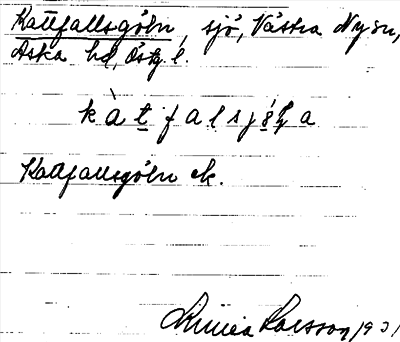 Kattfallsgöln, sjö, Västra Ny sn,
Aska hd, Östg. l.
kàtfalsjö̀la
Kattfallsgöln ek.
Linnea Larsson 1931